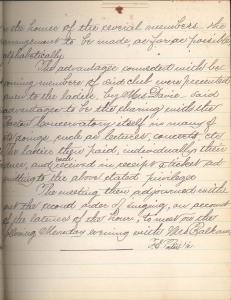 the homes of the several members. The
arrangement to be made as far as possible
alphabetically.
The advantages connected with be-
coming members of said club were presented
to the ladies by Mrs. said
advantages to be the sharing with the
Conservatory itself in many of
its doings, such as lectures, concerts, etc.
The ladies then paid, individually their
dues, and received in receipt a ticket ad-
mitting to the above stated privileges.
The meeting then adjourned with-
out the second order of singing, on account
of the lateness of the hour, to meet on the
following Monday evening with Mrs